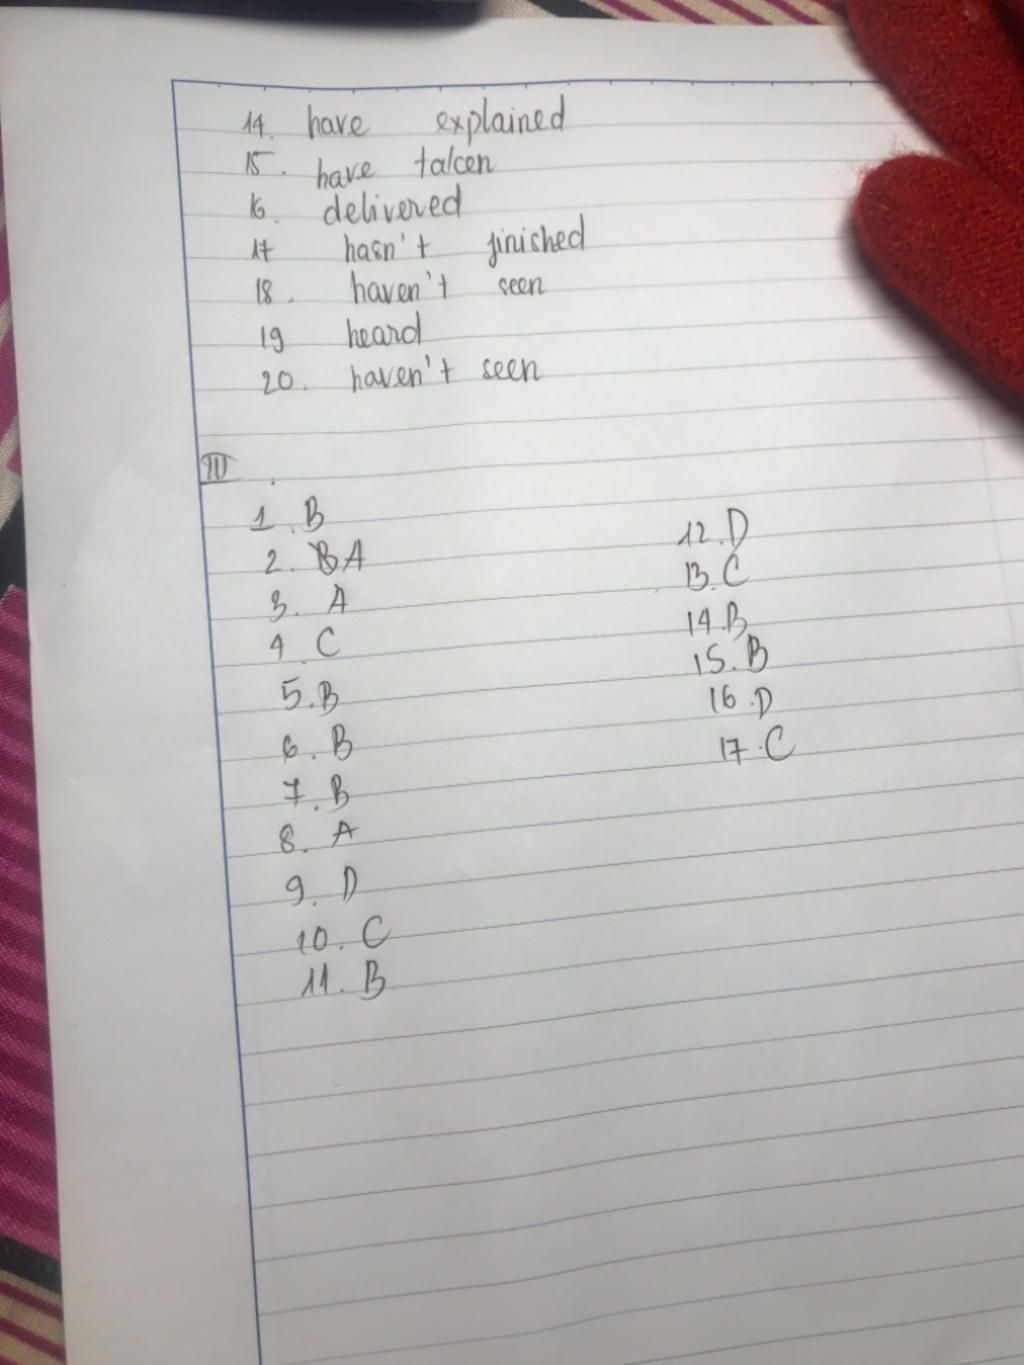 14. have explained
15. have taken
16. delivered
17 hasn't finished
18. haven't seen
19 heard
20. haven't seen
III.
1. B
2. A
3. A
4. C
5. B
6. B
7. B
8. A
9. D
10. C
11. B
12. D
13. C
14. B
15. B
16. D
17. C